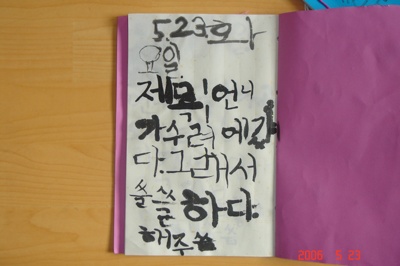 5.23화
요일
제목!언니
가수려에갔
다.그래서
쓸쓸하다.
해주
2006 5 23